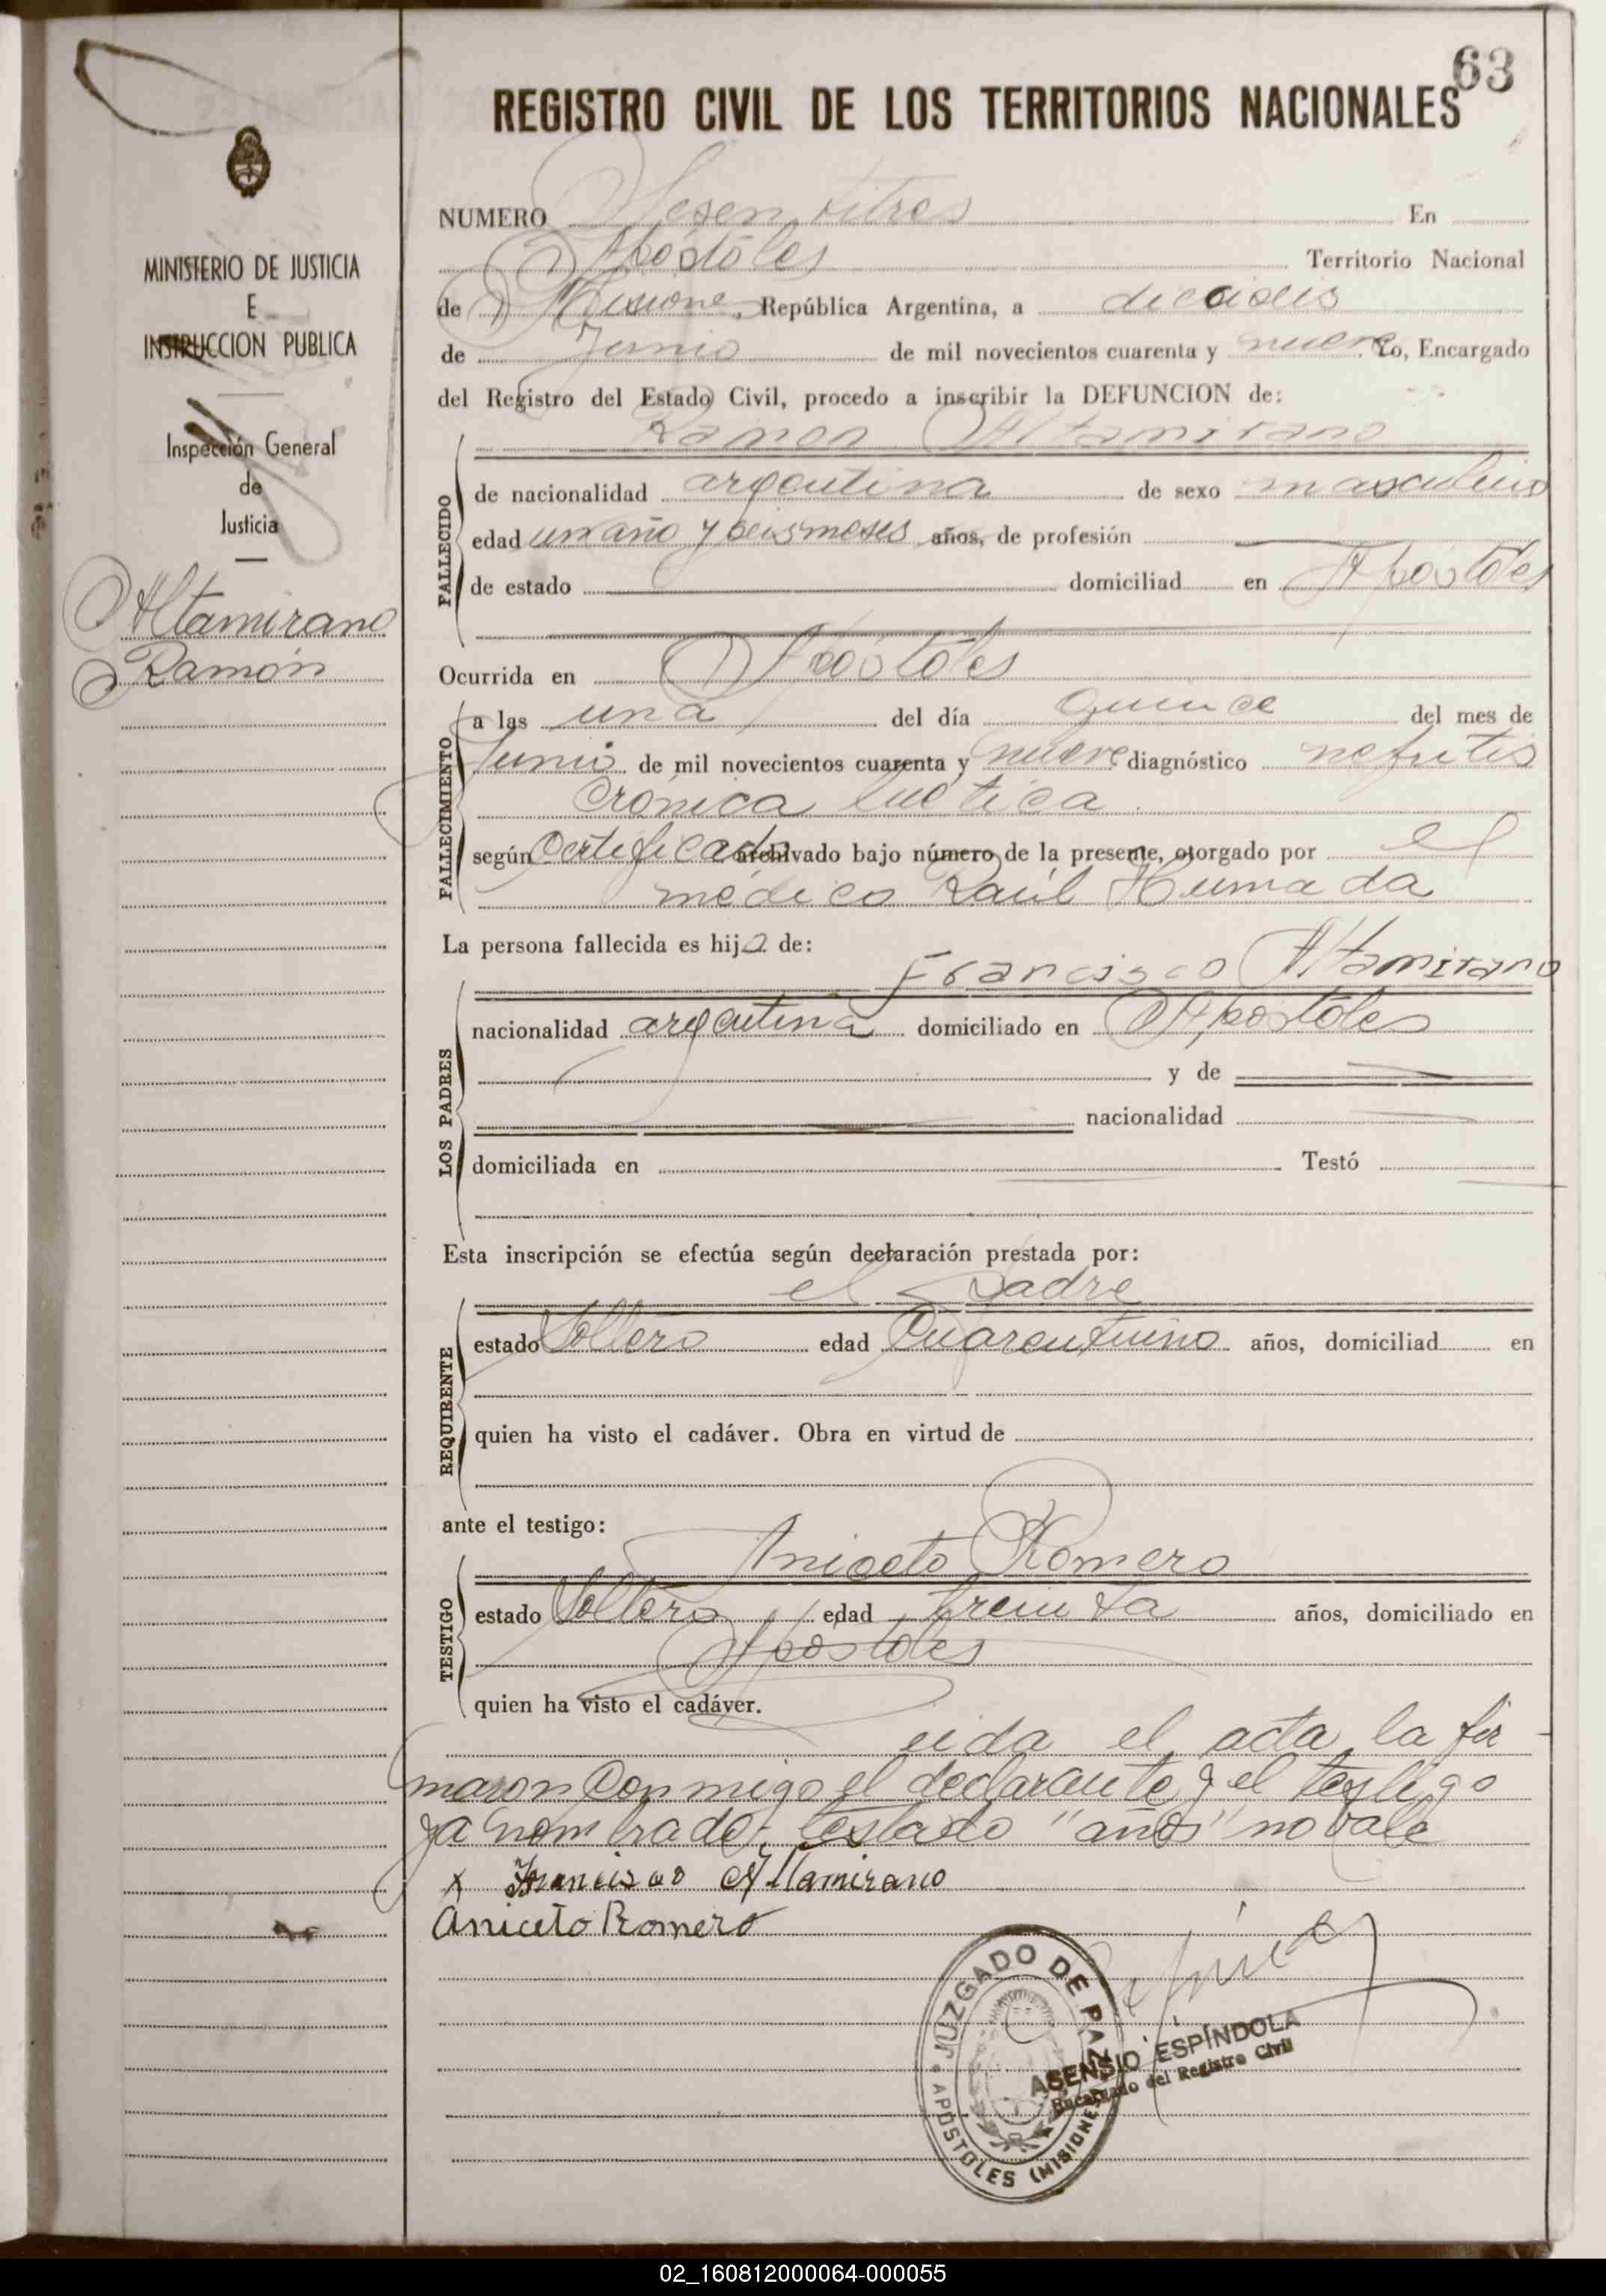 63
REGISTRO CIVIL DE LOS TERRITORIOS NACIONALES
MINISTERIO DE JUSTICIA
E
INSTRUCCION PUBLICA
Inspección General
de
Justicia
Altamirano
Ramón
NUMERO Sesentitres En
Apóstoles Territorio Nacional
de Misiones, República Argentina, a dieciseis
de Junio de mil novecientos cuarenta y nueve. Yo, Encargado
del Registro del Estado Civil, procedo a inscribir la DEFUNCION de:
Ramon Altamirano
FALLECIDO
de nacionalidad argentina de sexo masculino
edad un año y seis meses años, de profesión
de estado domiciliad en Apóstoles
Ocurrida en Apóstoles
FALLECIMIENTO
a las una del día quince del mes de
Junio de mil novecientos cuarenta y nueve diagnóstico nefritis
crónica luética
según certificado archivado bajo número de la presente, otorgado por el
médico Raúl Humada
La persona fallecida es hijo de:
Francisco Altamirano
LOS PADRES
nacionalidad argentina domiciliado en Apóstoles
y de
nacionalidad
domiciliada en Testó
Esta inscripción se efectúa según declaración prestada por:
el padre
REQUIRENTE
estado Soltero edad Cuarentiuno años, domiciliad en
quien ha visto el cadáver. Obra en virtud de
ante el testigo:
Aniceto Romero
TESTIGO
estado Soltero edad treinta años, domiciliado en
Apóstoles
quien ha visto el cadáver.
Leida el acta la fir
maron conmigo el declarante y el testigo
ya nombrado. testado "años" no vale
x Francisco Altamirano
Aniceto Romero
JUZGADO DE PAZ
APÓSTOLES (MISIONES)
ASENSIO ESPÍNDOLA
Encargado del Registro Civil
02_160812000064-000055